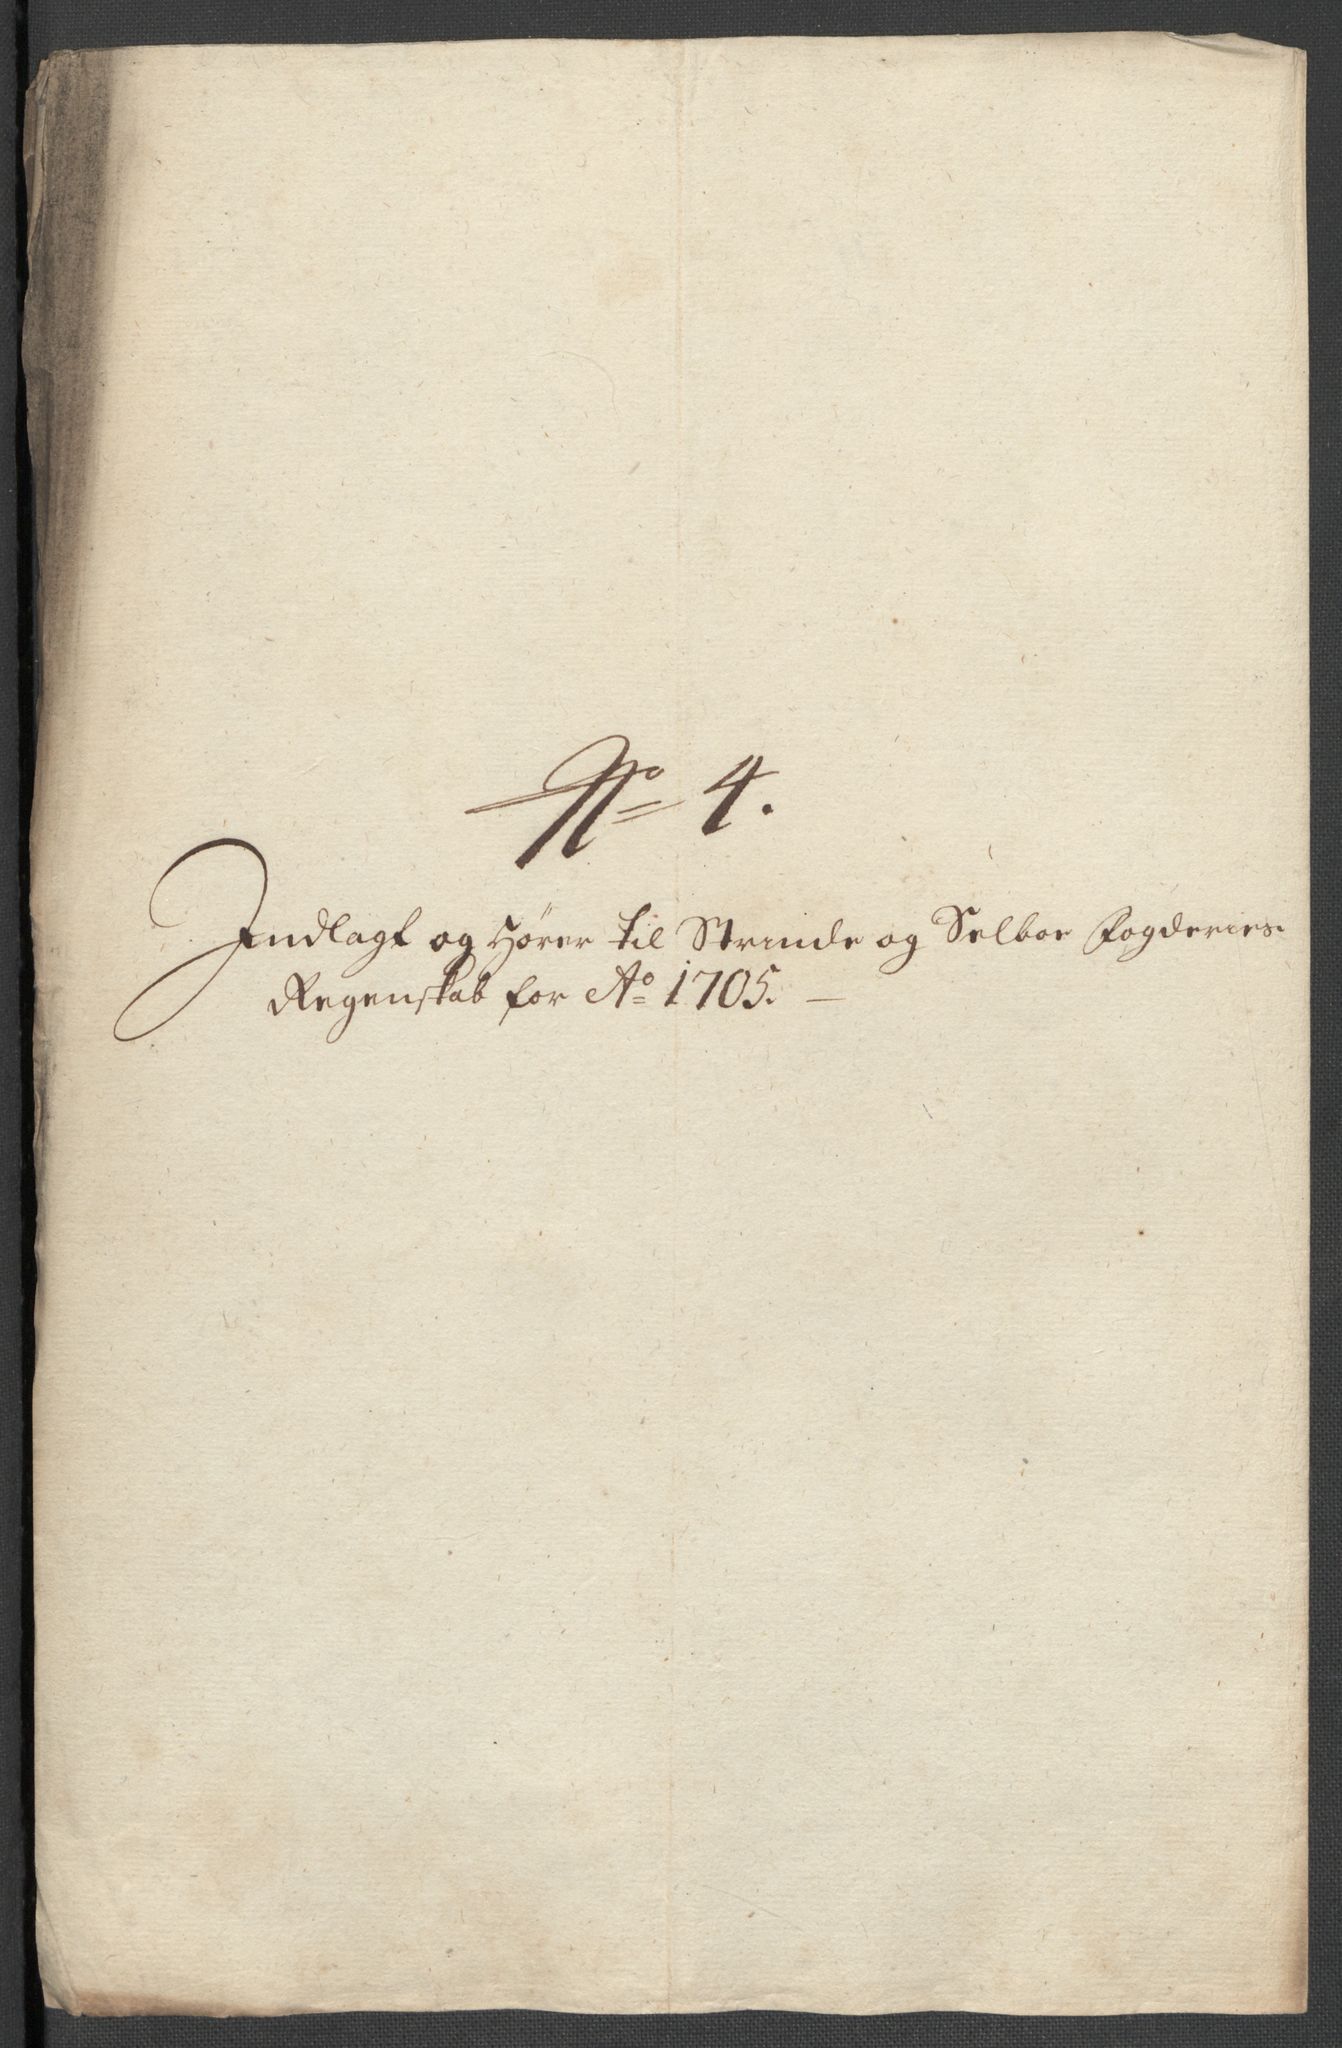 No 4.
Indlagt og hører til Strinde og Selboe Fogderies
Regenskab for Ao 1705. —